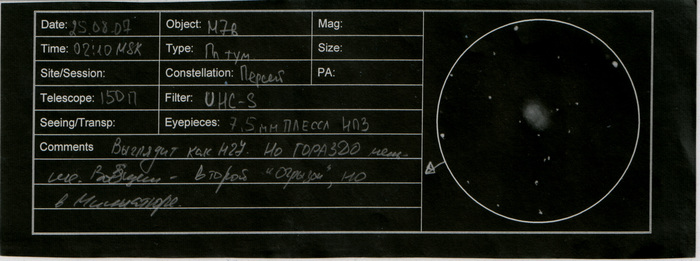 Date: 25.08.07 Object: M76 Mag:
Time: 02:10 MSK Type: Пл тум Size:
Site/Session: Constellation: Персей PA:
Telescope: 150П Filter: UHC-S
Seeing/Transp: Eyepieces: 7,5мм ПЛЕССЛ НПЗ
Comments Выглядит как М27. Но ГОРАЗДО мень-
ше. - второй "Огрызок", но
в Миниатюре.